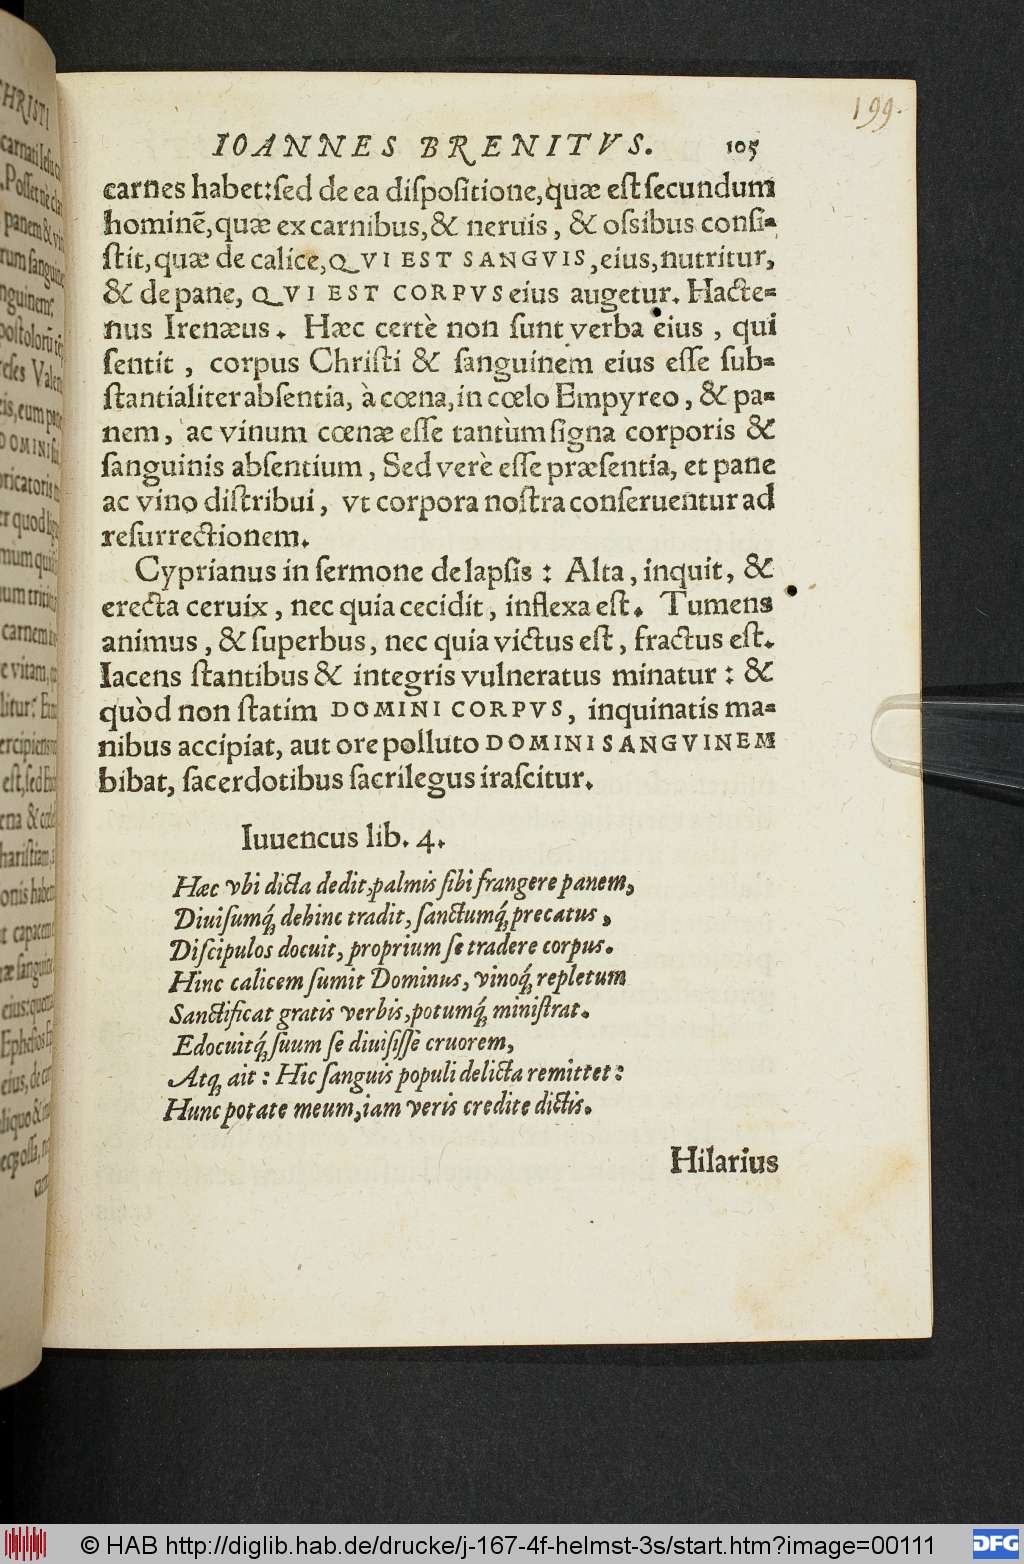 199.
IOANNES BRENITVS. 105
carnes habet:ſed de ea diſpoſitione,quæ eſt ſecundum
hominẽ,quæ ex carnibus,& neruis, & oſsibus conſi-
ſtit,quæ de calice,QVI EST SANGVIS,eius,nutritur,
& de pane, QVI EST CORPVS eius augetur. Hacte-
nus Irenæus. Hæc certè non ſunt verba eius, qui
ſentit, corpus Chriſti & ſanguinem eius eſſe ſub-
ſtantialiter abſentia, à cœna,in cœlo Empyreo, & pa-
nem, ac vinum cœnæ eſſe tantùm ſigna corporis &
ſanguinis abſentium, Sed verè eſſe præſentia, et pane
ac vino diſtribui, vt corpora noſtra conſeruentur ad
reſurrectionem.
Cyprianus in ſermone de lapſis: Alta, inquit, &
erecta ceruix, nec quia cecidit, inflexa eſt. Tumens
animus, & ſuperbus, nec quia victus eſt, fractus eſt.
Iacens ſtantibus & integris vulneratus minatur: &
quòd non ſtatim DOMINI CORPVS, inquinatis ma-
nibus accipiat, aut ore polluto DOMINI SANGVINEM
bibat, ſacerdotibus ſacrilegus iraſcitur.
Iuuencus lib. 4.
Hæc vbi dicta dedit,palmis ſibi frangere panem,
Diuiſumq́ dehinc tradit, ſanctumq́ precatus,
Diſcipulos docuit, proprium ſe tradere corpus.
Hinc calicem ſumit Dominus, vinoq́ repletum
Sanctificat gratis verbis,potumq́ miniſtrat.
Edocuitq́ ſuum ſe diuiſiſſe cruorem,
Atq ait: Hic ſanguis populi delicta remittet:
Hunc potate meum,iam veris credite dictis.
Hilarius
© HAB http://diglib.hab.de/drucke/j-167-4f-helmst-3s/start.htm?image=00111
DFG